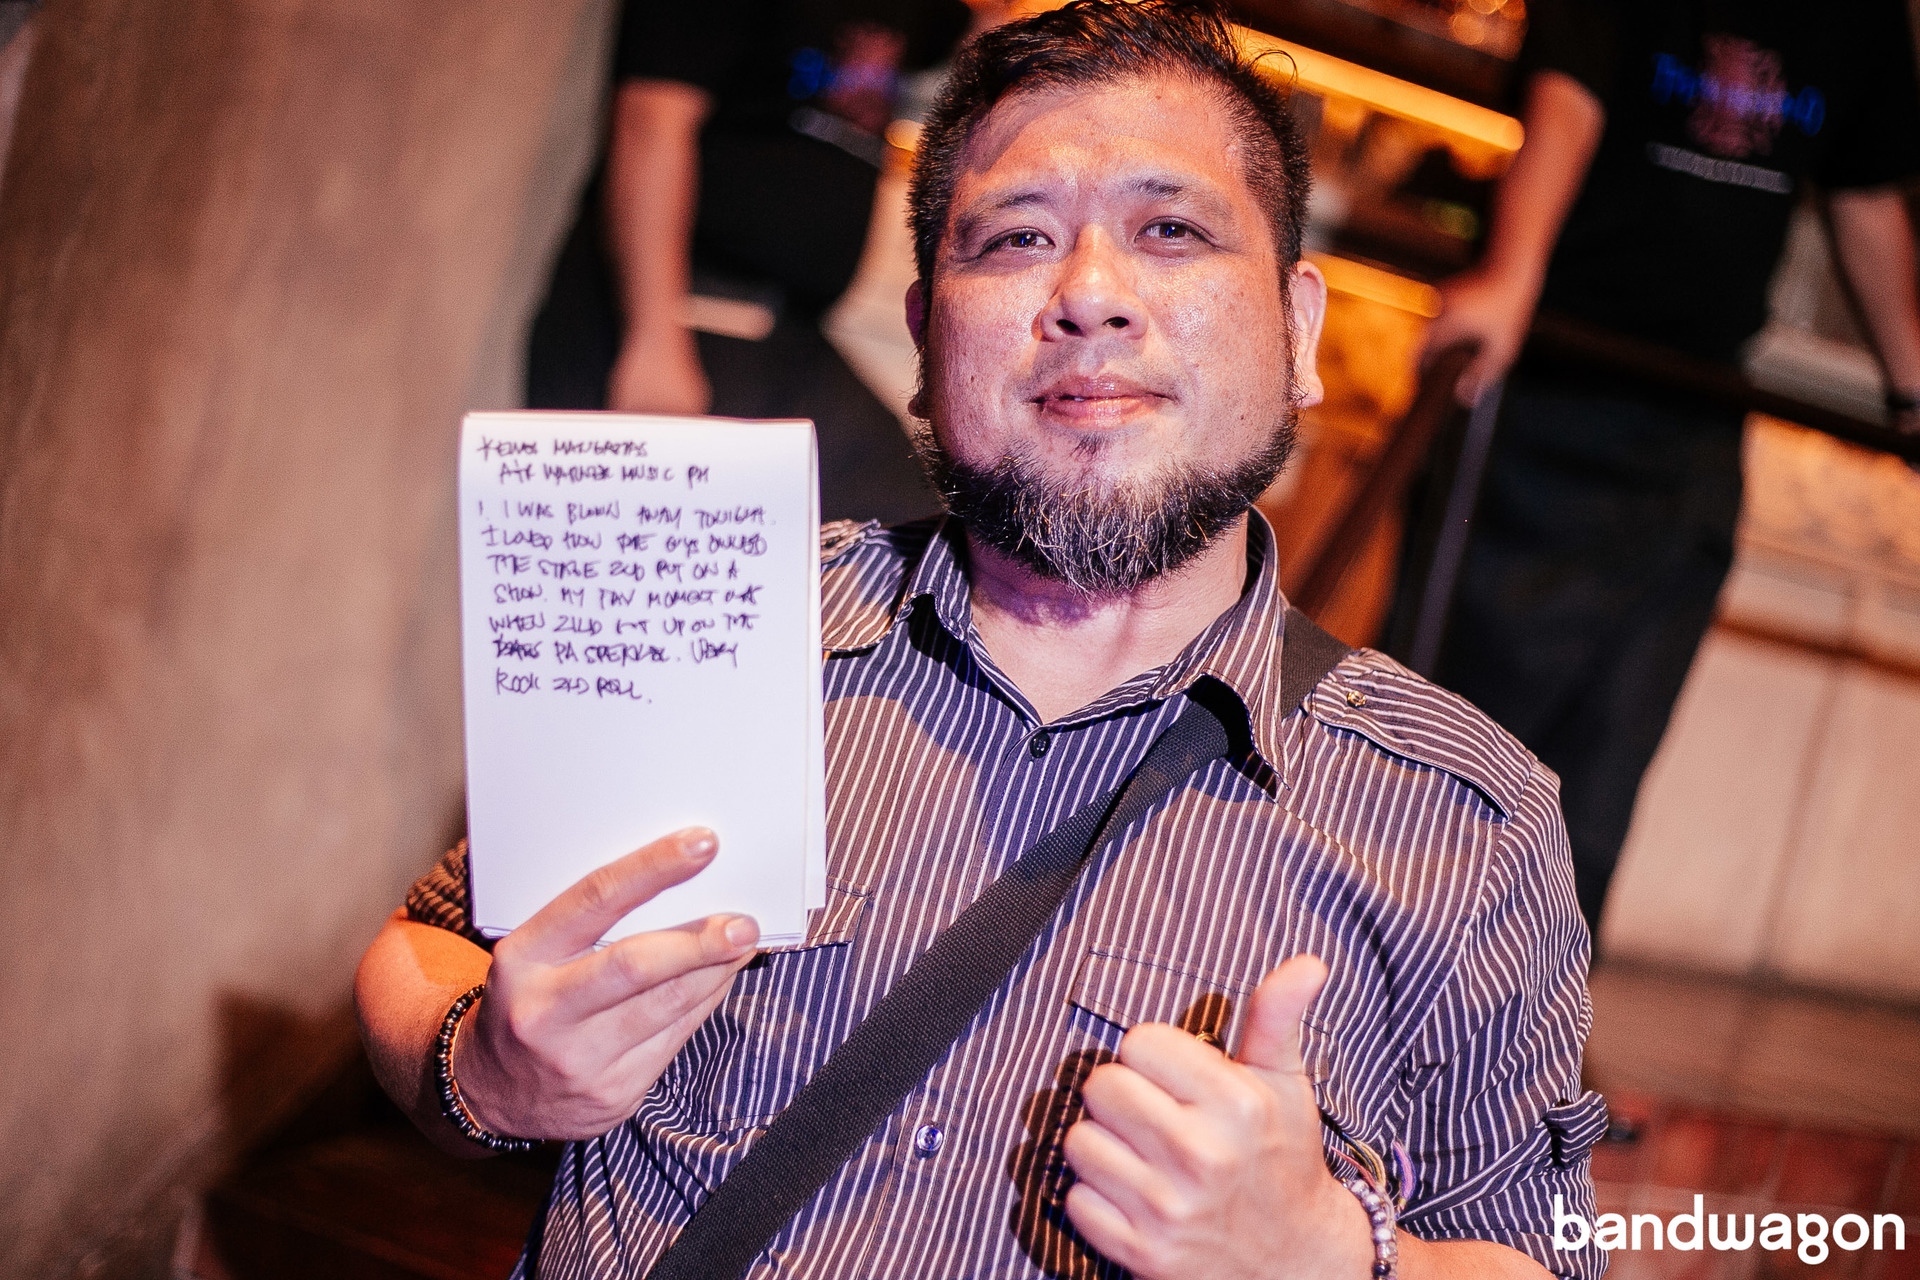 A+R WARNER MUSIC PH
1. I WAS BLOWN AWAY TONIGHT.
I LOVED HOW THE GUYS OWNED
THE STAGE AND PUT ON A
SHOW. MY FAV MOMENT WAS
WHEN ZILD GOT UP ON THE
BASS PA SPEAKER. VERY
ROCK AND ROLL.
bandwagon